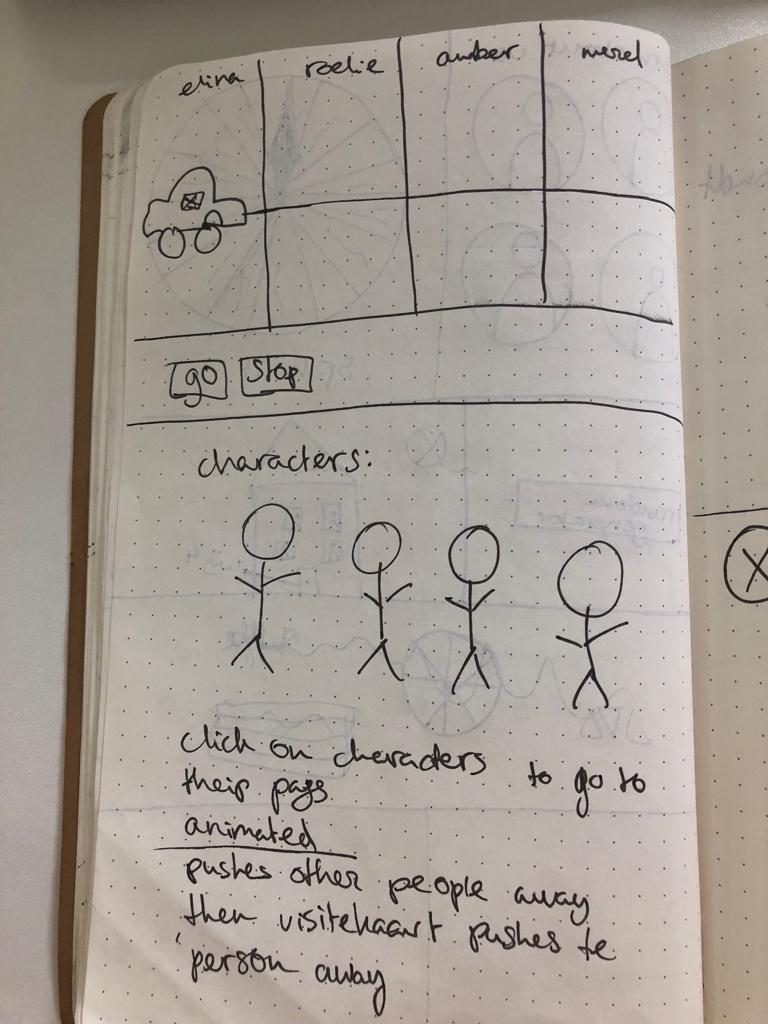 elina roelie amber merel
go Stop
characters:
click on characters to go to
their page
animated
pushes other people away
then visitekaart pushes te
person away
X